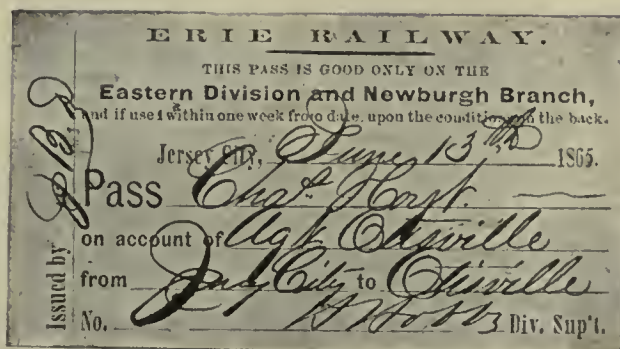 ERIE RAILWAY.
THIS PASS IS GOOD ONLY ON THE
Eastern Division and Newburgh Branch,
and if used within one week from date, upon the conditions on the back.
Jersey City, June 13th 1865.
Pass Chas. Hoyt.
on account of Agt Otisville
from Jersey City to Otisville
No. H Hobbs Div. Sup't.
Issued by